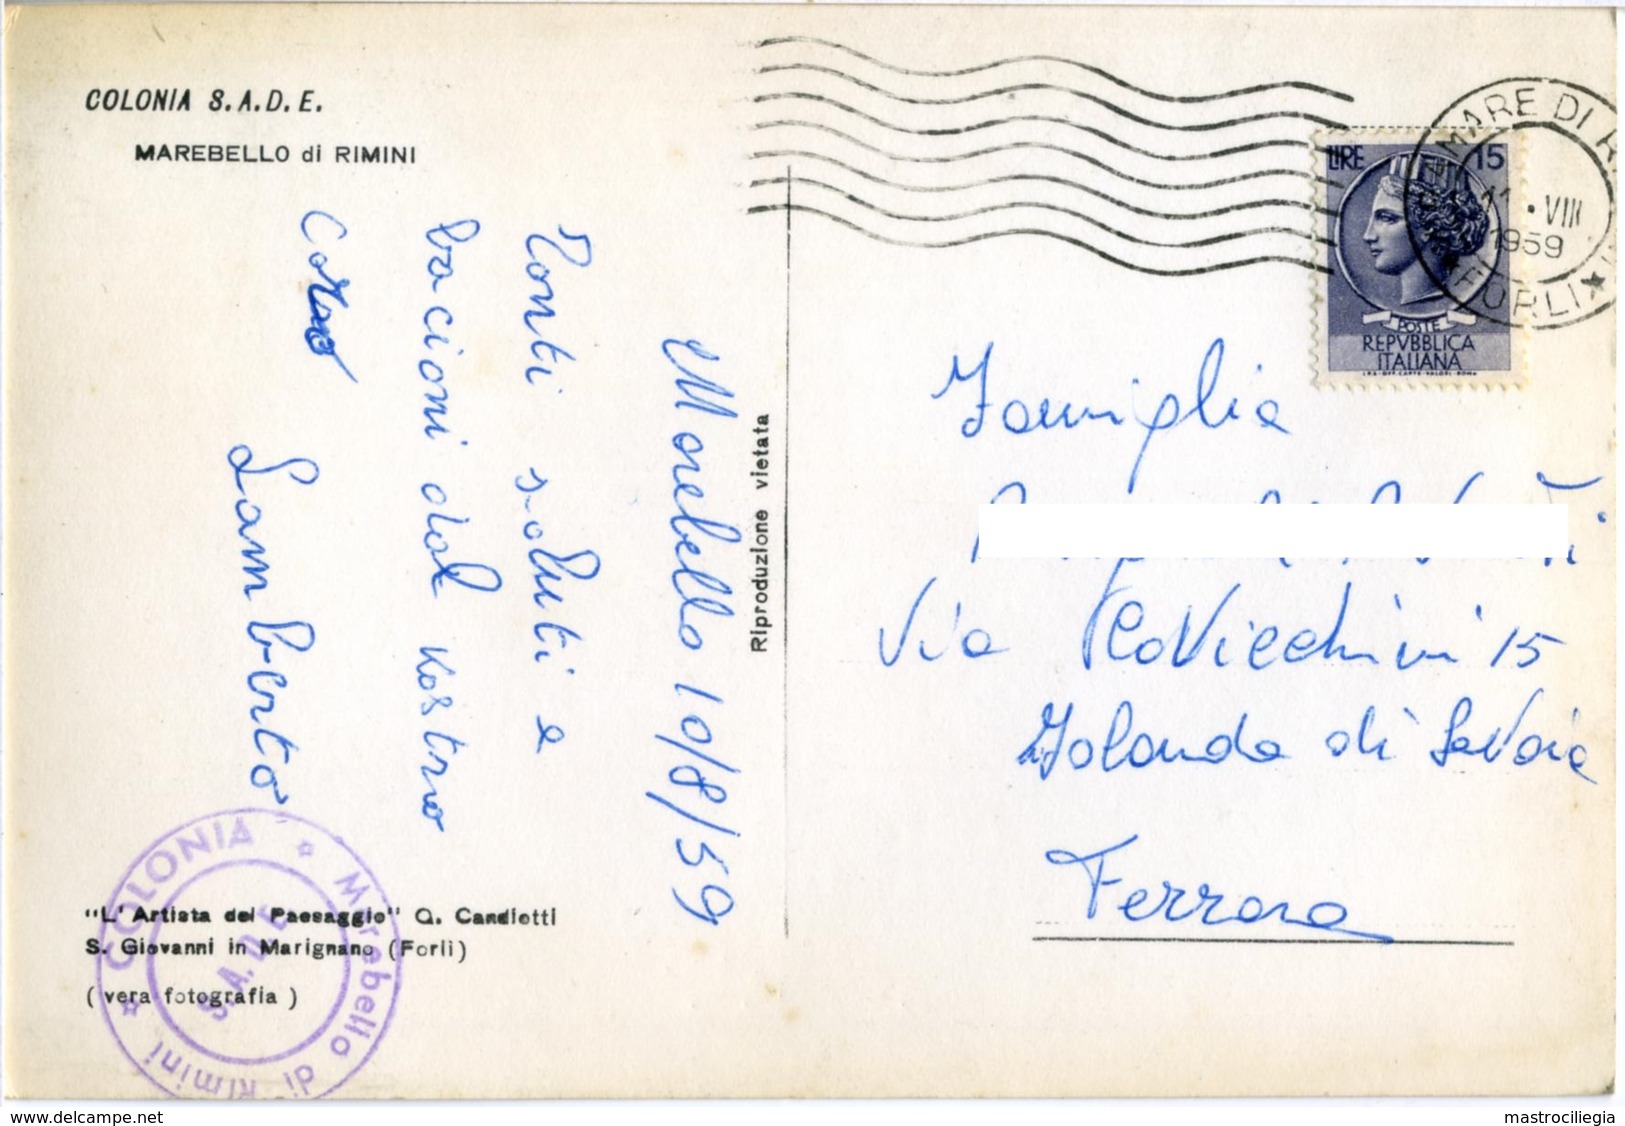 COLONIA S.A.D.E.
MAREBELLO di RIMINI
Marebello 10/8/59
Tonti saluti e
bacioni dal vostro
caro
Lamberto
"L'Artista del Paesaggio" G. Candiotti
S. Giovanni in Marignano (Forlì)
(vera fotografia)
COLONIA ☆ Marebello di Rimini ☆
S.A.D.E.
Riproduzione vietata
MARE DI
11 . VIII
1959
★ FORLI ★
LIRE 15
POSTE
REPVBBLICA
ITALIANA
I.P.S. OFF. CARTE-VALORI-ROMA
Famiglia
Via 15
Jolanda di Savoia
Ferrara
delcampe.net
mastrociliegia